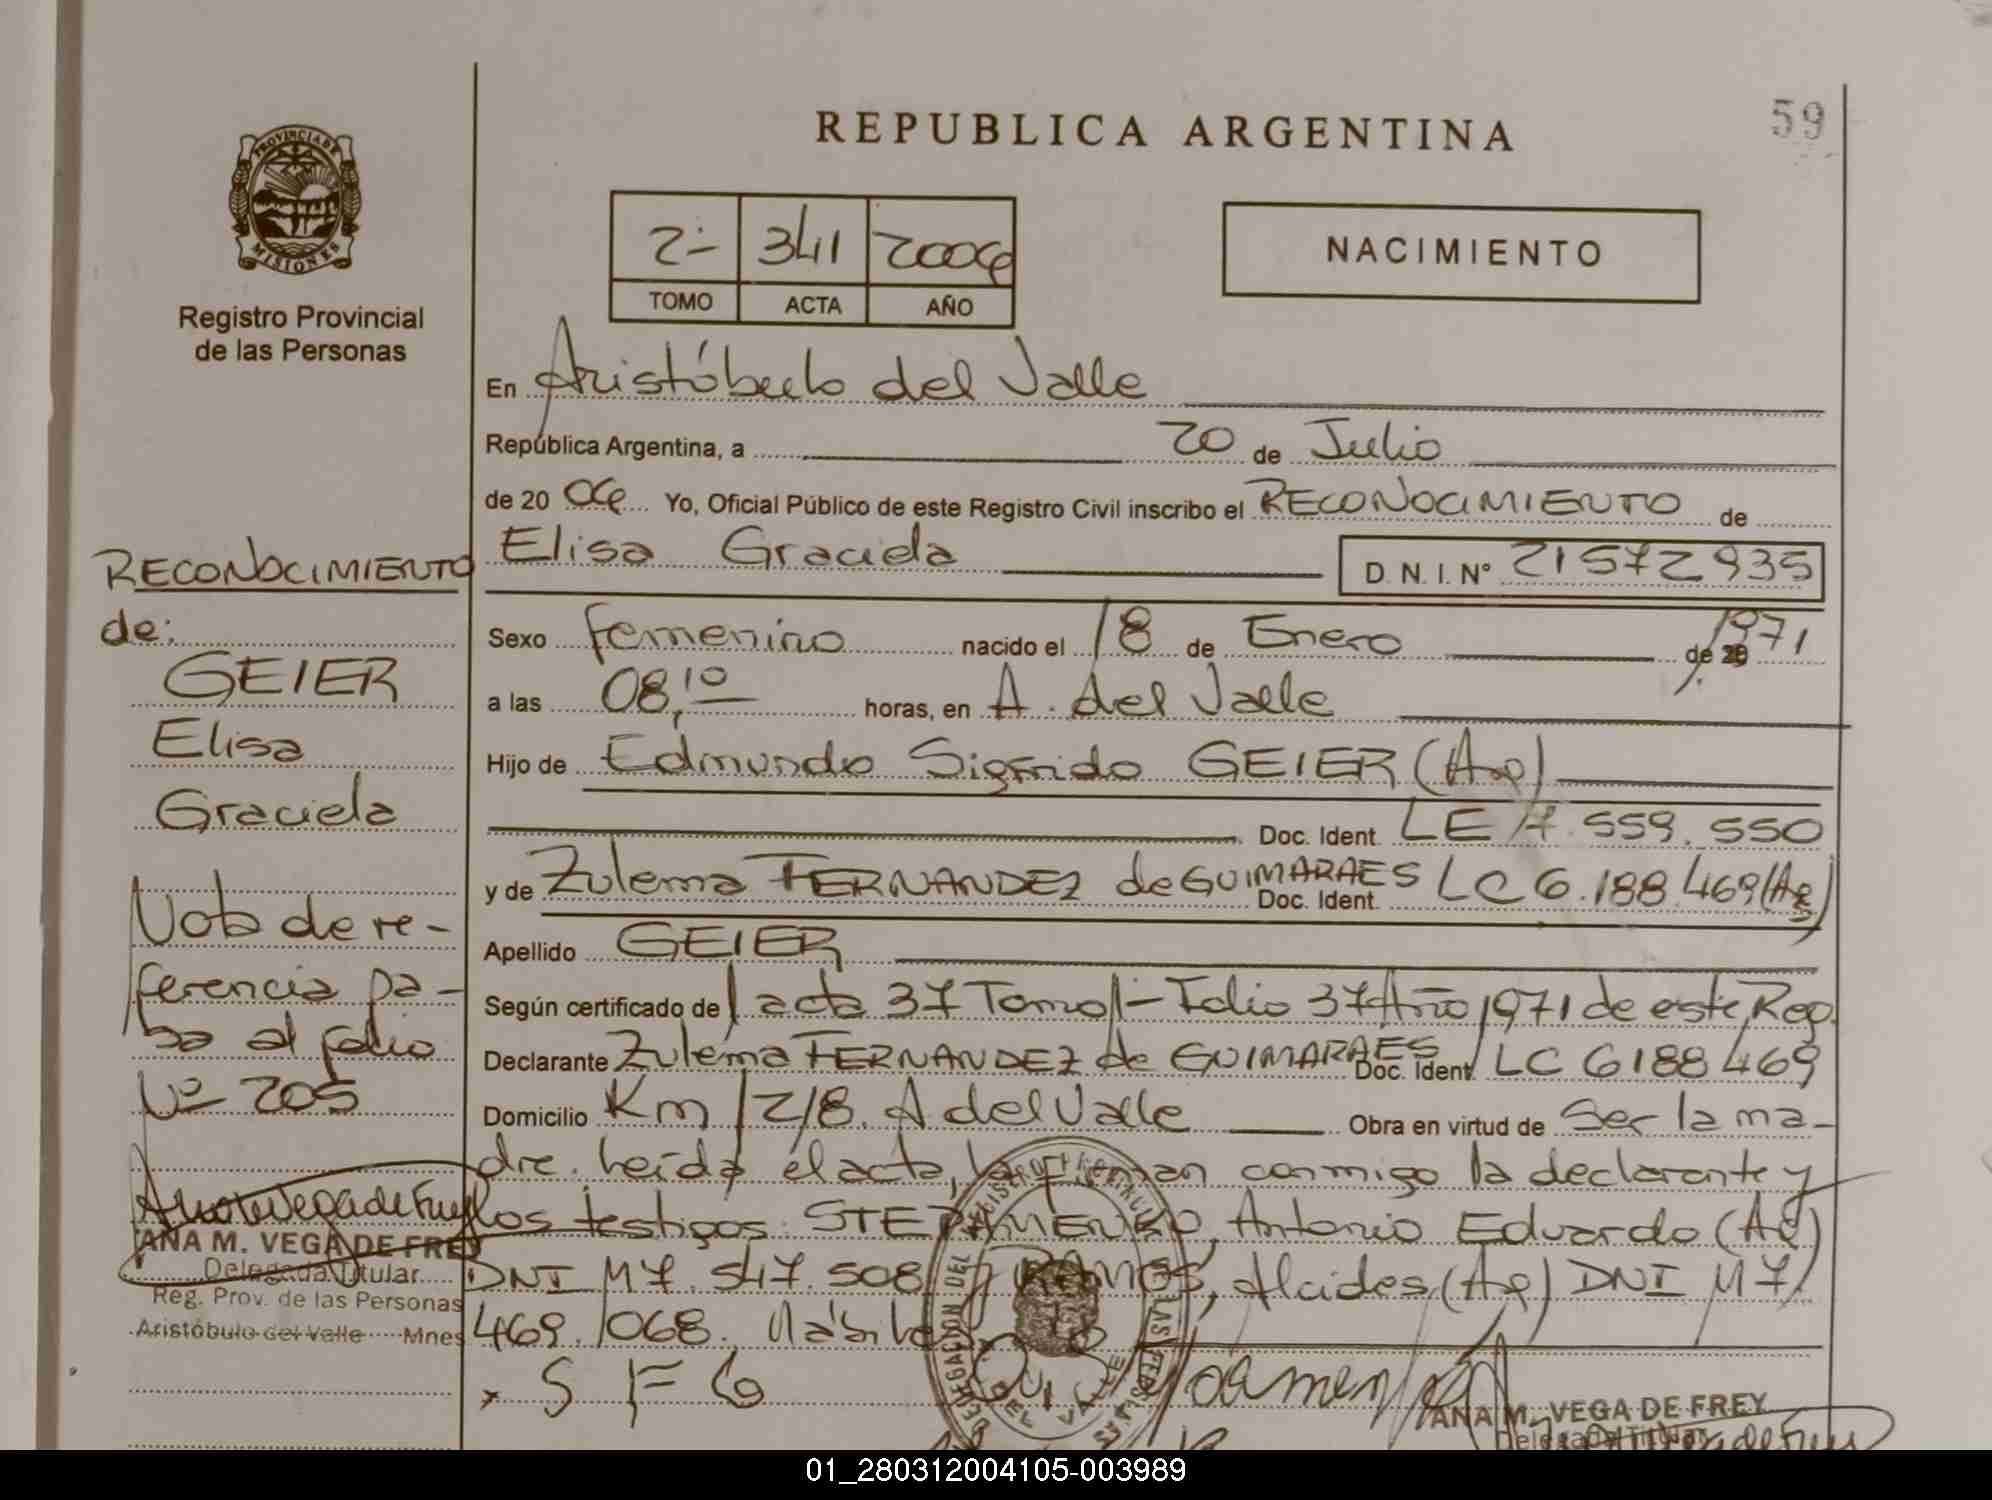 59
REPUBLICA ARGENTINA
PROVINCIA DE
MISIONES
Registro Provincial
de las Personas
2º 341 2006
TOMO ACTA AÑO
NACIMIENTO
En Aristóbulo del Valle
República Argentina, a 20 de Julio
de 20 06 Yo, Oficial Público de este Registro Civil inscribo el RECONOCIMIENTO de
Elisa Graciela D. N. I. Nº 21572935
Sexo femenino nacido el 18 de Enero de 1971
a las 08,10 horas, en A. del Valle
Hijo de Edmundo Sigfrido GEIER (Arg)
Doc. Ident. LE 7.559.550
y de Zulema FERNANDEZ de GUIMARAES Doc. Ident. LC 6.188.469 (Arg)
Apellido GEIER
Según certificado de acta 37 Tomo 1- Folio 37 Año 1971 de este Reg.
Declarante Zulema FERNANDEZ de GUIMARAES Doc. Ident. LC 6188469
Domicilio Km 12/8. A del Valle Obra en virtud de Ser la ma-
dre. Leída el acta, la firman conmigo la declarante y
los testigos: Antonio Eduardo (Arg)
DNI M7.547.508 y RAMOS, Alcides (Arg) DNI M7
469.068.
x S F G
RECONOCIMIENTO
de:
GEIER
Elisa
Graciela
Nota de re-
ferencia pa-
sa al folio
Nº 205
ANA M. VEGA DE FREY
Delegada Titular
Reg. Prov. de las Personas
Aristóbulo del Valle Mnes
ANA M. VEGA DE FREY
Delegada Titular
01_280312004105-003989